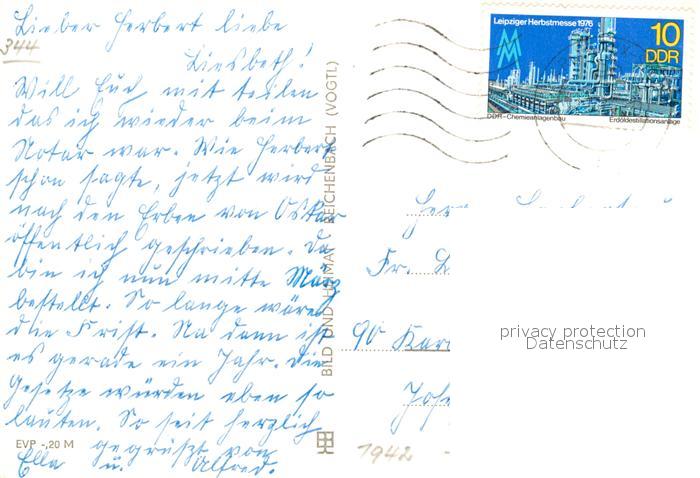 Lieber Herbert liebe
344
Liesbeth!
Will Euch mit teilen
das ich wieder beim
Notar war. Wie Herbert
schon sagte, jetzt wird
nach den Erben von Oskar
öffentlich geschrieben. Da
bin ich nun mitte März
bestellt. So lange wäre
die Frist. Na dann ist
es gerade ein Jahr. Die
Gesetze würden eben so
lauten. So seit herzlich
gegrüßt von
Ella u. Alfred.
EVP -,20 M
BILD UND HEIMAT REICHENBACH (VOGTL)
Leipziger Herbstmesse 1976
10
DDR
DDR-Chemieanlagenbau
Erdöldestillationsanlage
Fr.
90
privacy protection
Datenschutz
1942